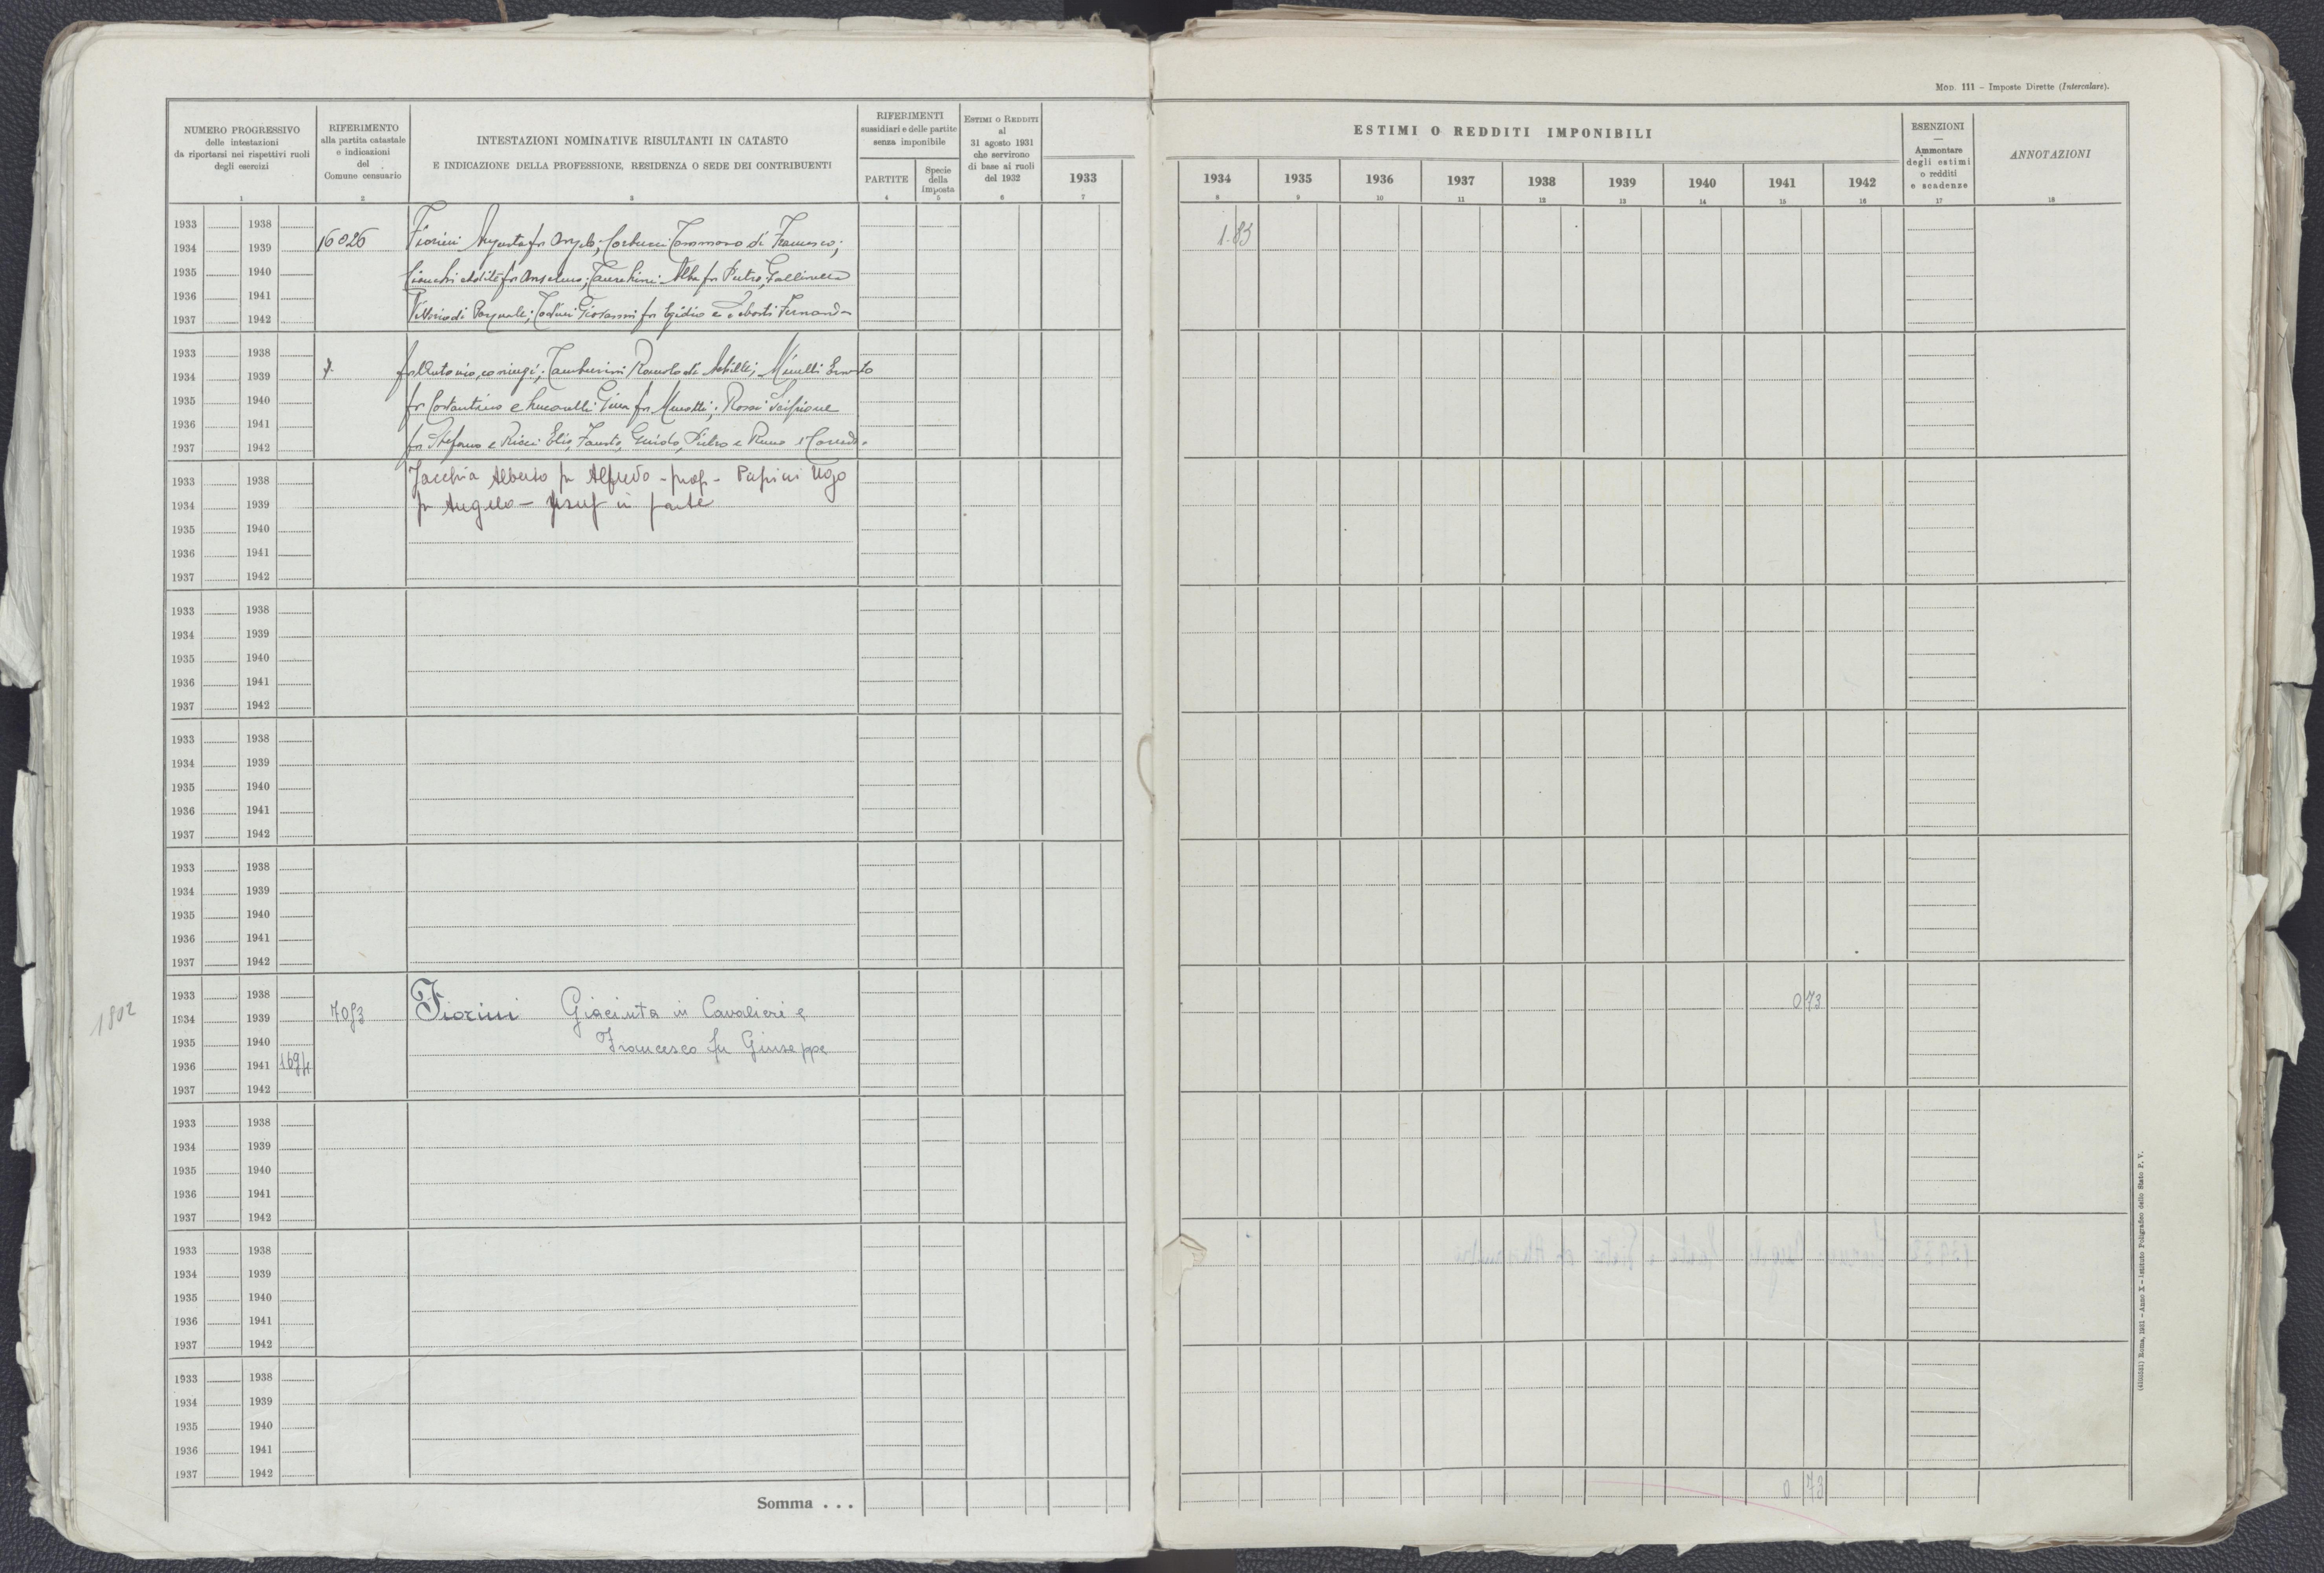 Mod. 111 – Imposte Dirette (Intercalare).
NUMERO PROGRESSIVO
delle intestazioni
da riportarsi nei rispettivi ruoli
degli esercizi
1
RIFERIMENTO
alla partita catastale
e indicazioni
del
Comune censuario
2
INTESTAZIONI NOMINATIVE RISULTANTI IN CATASTO
E INDICAZIONE DELLA PROFESSIONE, RESIDENZA O SEDE DEI CONTRIBUENTI
3
RIFERIMENTI
sussidiari e delle partite
senza imponibile
PARTITE
4
Specie
della
imposta
5
Estimi o Redditi
al
31 agosto 1931
che servirono
di base ai ruoli
del 1932
6
1933
7
ESTIMI O REDDITI IMPONIBILI
1934 1935 1936 1937 1938 1939 1940 1941 1942
8 9 10 11 12 13 14 15 16
ESENZIONI
—
Ammontare
degli estimi
o redditi
e scadenze
17
ANNOTAZIONI
18
1933 1938
1934 1939 16026 Fiorini Augusta fu Angelo; Corbucci Tommaso di Francesco; 1.83
1935 1940 fu Anselmo; Alba fu Pietro; Gallinella
1936 1941
1937 1942 di Pasquale; Giovanni fu Egidio e Fernanda
1933 1938
1934 1939 fu Antonio, coniugi; Tamburini Romolo di Achille; Minelli Ernesto
1935 1940 fu Costantino e Lucarelli Gina fu; Rossi Scipione
1936 1941
1937 1942 fu Stefano e Ricci Elio, Fausto, Guido, Pietro e
1933 1938 Jacchia Alberto fu Alfredo - prop - Papini Ugo
1934 1939 fu Angelo - usuf in parte
1935 1940
1936 1941
1937 1942
1933 1938
1934 1939
1935 1940
1936 1941
1937 1942
1933 1938
1934 1939
1935 1940
1936 1941
1937 1942
1933 1938
1934 1939
1935 1940
1936 1941
1937 1942
1933 1938 0 73
1802 1934 1939 7083 Fiorini Giacinta in Cavalieri e
1935 1940 Francesco fu Giuseppe
1936 1941 1694
1937 1942
1933 1938
1934 1939
1935 1940
1936 1941
1937 1942
1933 1938
1934 1939
1935 1940
1936 1941
1937 1942
1933 1938
1934 1939
1935 1940
1936 1941
1937 1942
Somma . . . 0 73
Roma, 1931 - Anno X - Istituto Poligrafico dello Stato P. V.